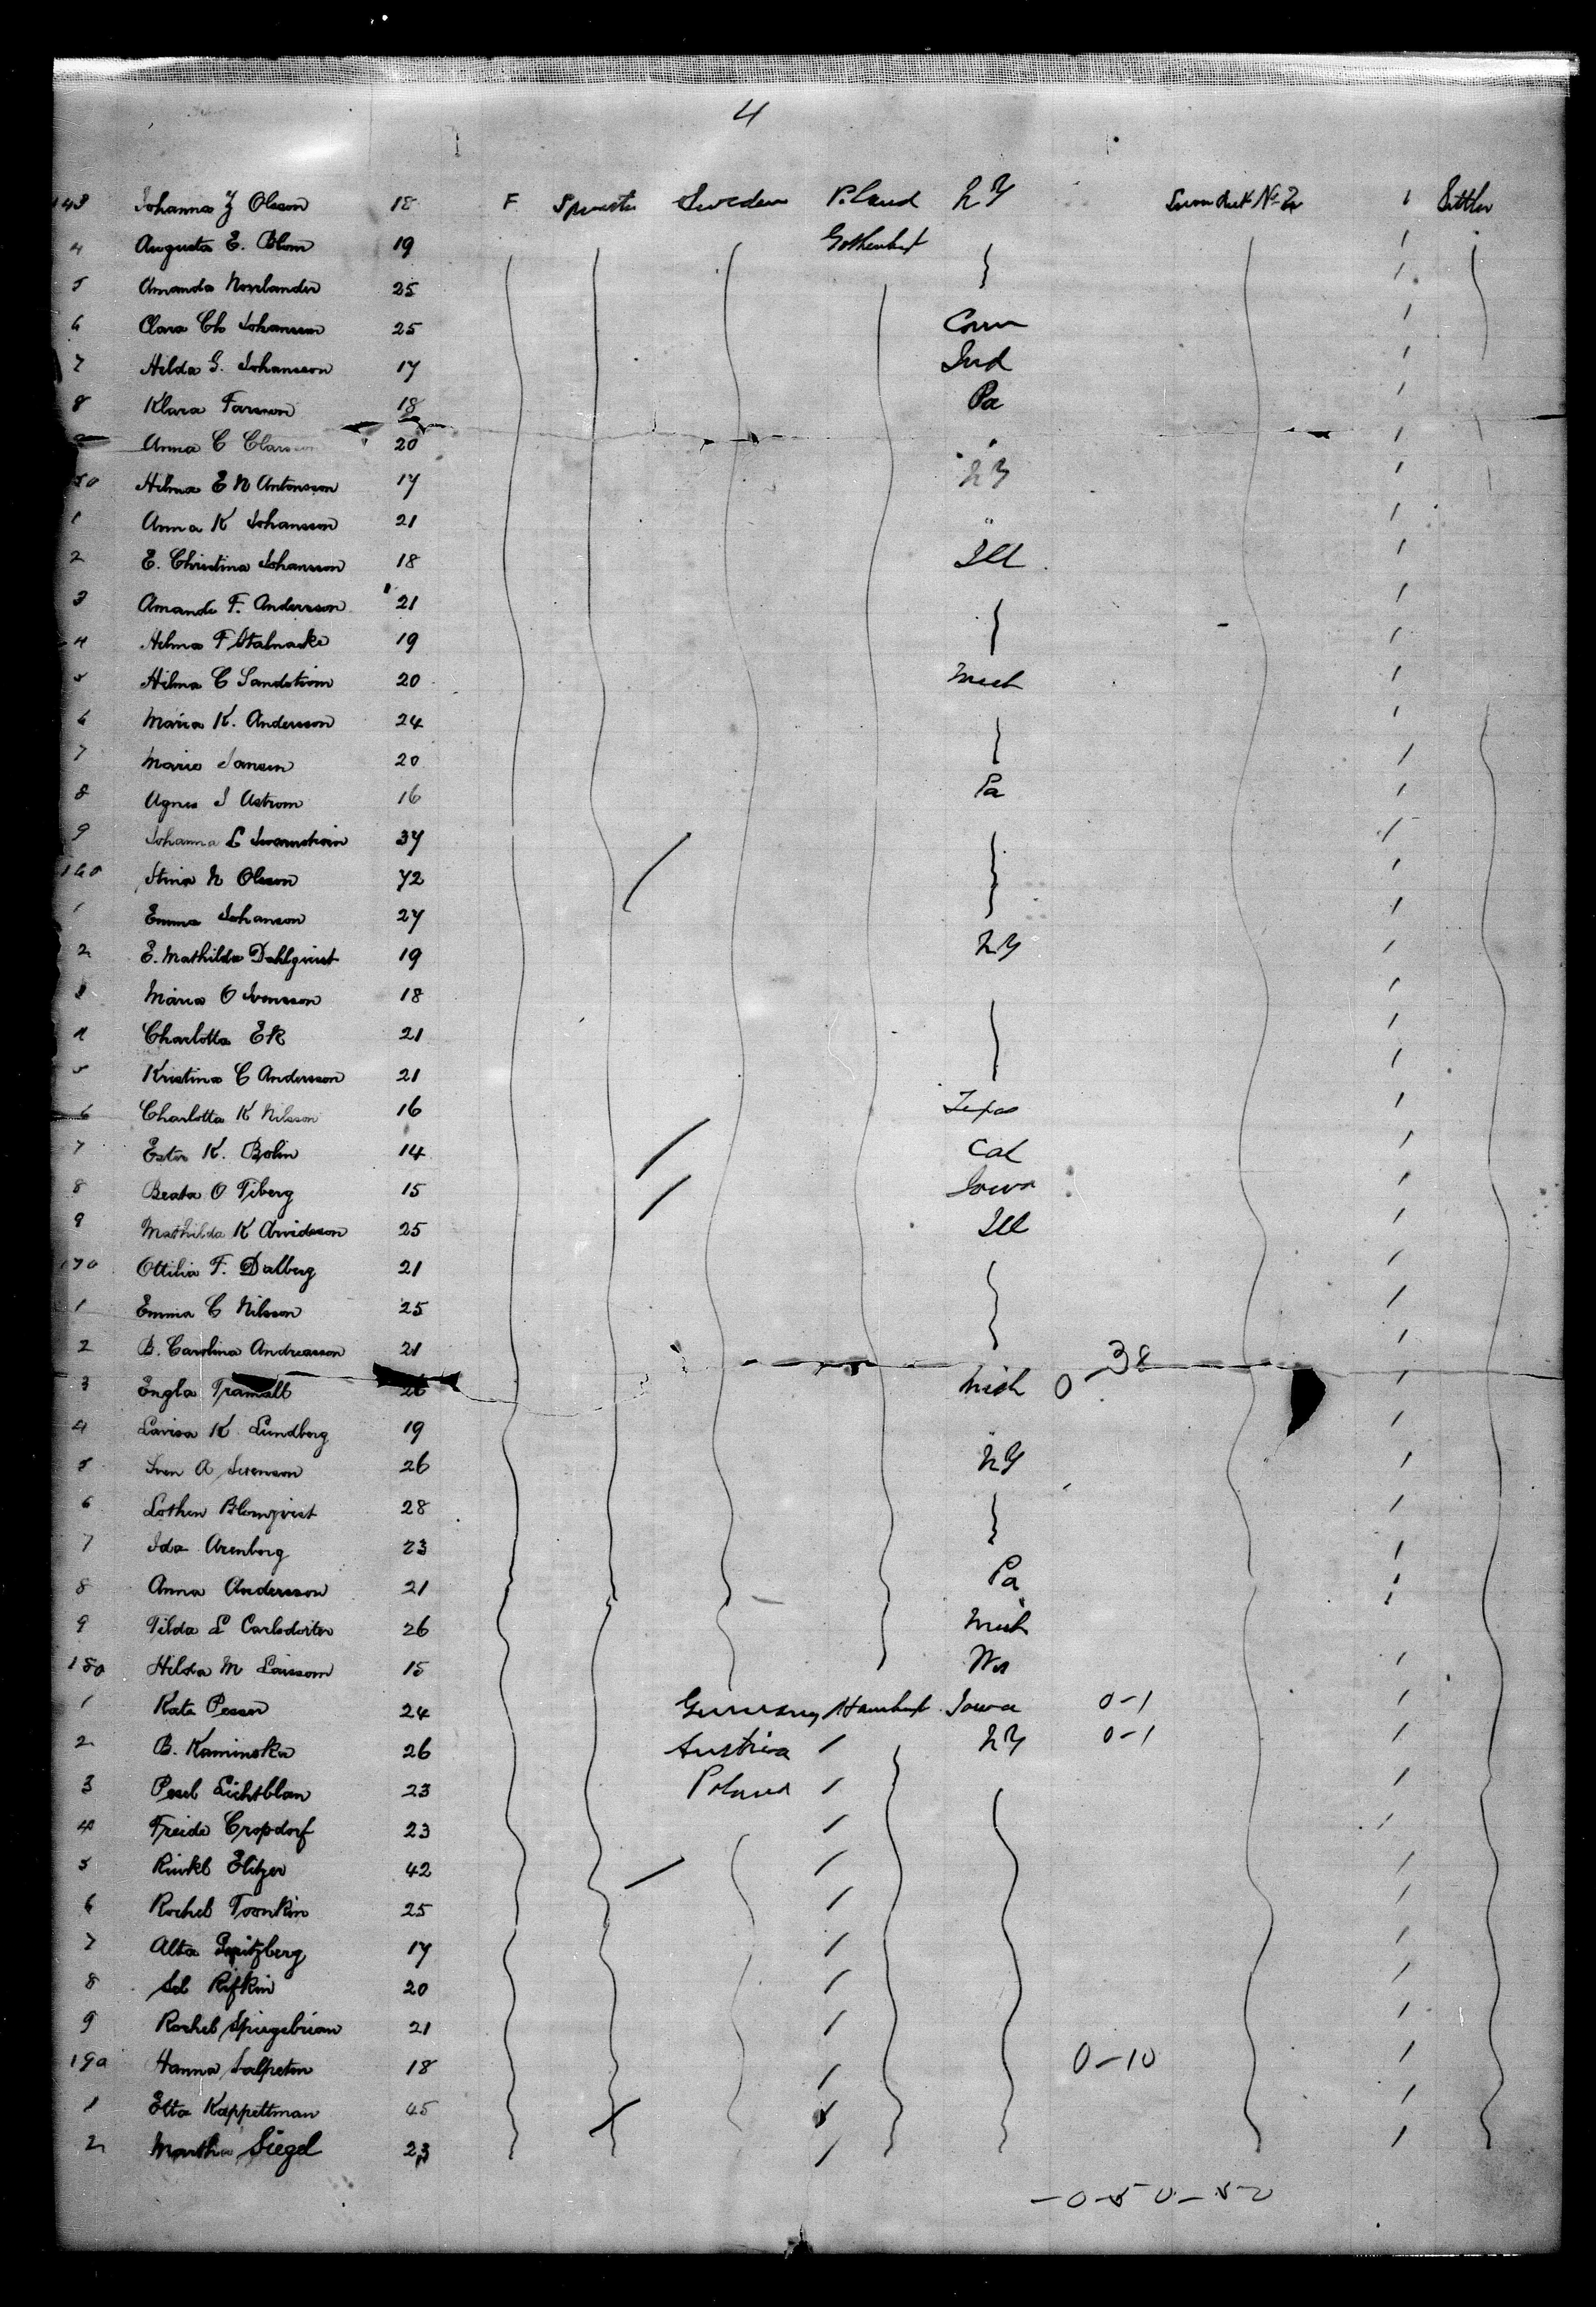 4
143 Johanna Z Olsson 18 F Spinster Sweden N.Y. 1 Settler
4 Augusta E. Blom 19 1
5 Amanda Norrlander 25 1
6 Clara Ch Johansson 25 Conn 1
7 Hilda G. Johansson 17 Ind 1
8 Klara Farsson 18 Pa 1
Anna C 20 " 1
50 Hilma E N Antonsson 17 N.Y. 1
1 Anna K Johansson 21 " 1
2 E. Christina Johansson 18 Ill 1
3 Amanda F. Andersson 21 1
4 Hilma F Stalnacke 19 1
5 Hilma C Sandstrom 20 Mich 1
6 Maria K. Andersson 24 1
7 Maria Jansen 20 1
8 Agnes J Astrom 16 Pa 1
9 Johanna L 37 1
160 Stina N Olsson 72 1
1 Emma Johanson 27 1
2 E. Mathilda Dahlqvist 19 N.Y. 1
3 Maria O Svensson 18 1
4 Charlotta Ek 21 1
5 Kristina C Andersson 21 1
6 Charlotta K Nilsson 16 Texas 1
7 Ester K. Bolin 14 Cal 1
8 Beata O Tiberg 15 Iowa 1
9 Mathilda K Arvidsson 25 Ill 1
170 Ottilia F. Dalberg 21 1
1 Emma C Nilsson 25 1
2 B. Carolina Andreasson 21 38 1
3 Engla 26 Mich 0 1
4 Lovisa K Lundberg 19 1
5 Sven A Svenson 26 N.Y. 1
6 Lothen Blomqvist 28 1
7 Ida Arenborg 23 1
8 Anna Andersson 21 Pa 1
9 Tilda L Carlsdotter 26 Mich
180 Hilda M Larsson 15 Wis 1
1 Kata Pesson 24 Germany Hamburg Iowa 0-1 1
2 B. Kaminska 26 Austria / N.Y. 0-1 1
3 Pesel Lichtblau 23 Poland / 1
4 Freida Cropdorf 23 / 1
5 Rinkel Elitzer 42 / 1
6 Rochel Toonkin 25 / 1
7 Alta Spitzberg 17 / 1
8 Sel Rifkin 20 / 1
9 Rochel 21 / 1
190 Hanna Salpeter 18 / 0-10 1
1 Etta Kappeltman 45 / 1
2 Martha Siegel 23 / 1
-0-50-52